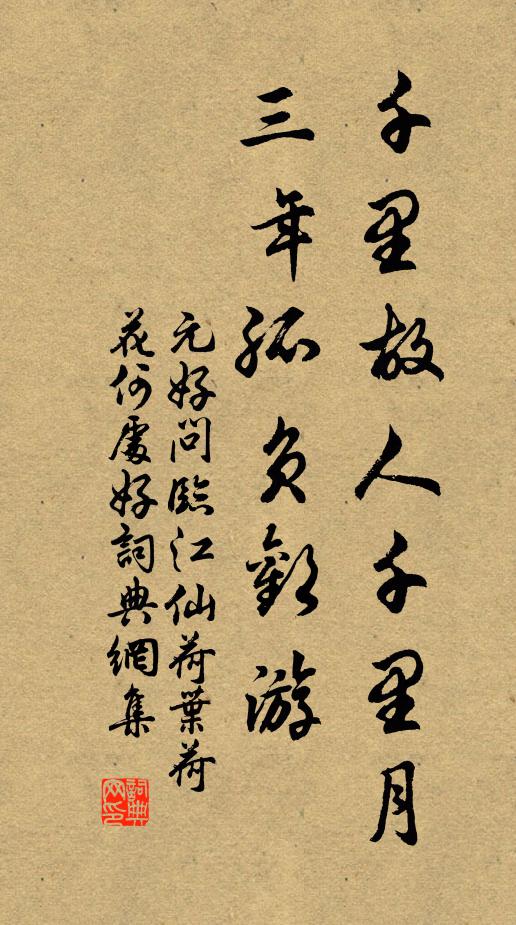 千里故人千里月
三年孤负歡游
元好问臨江仙荷葉荷
花何處好詞典網集
詞典网印